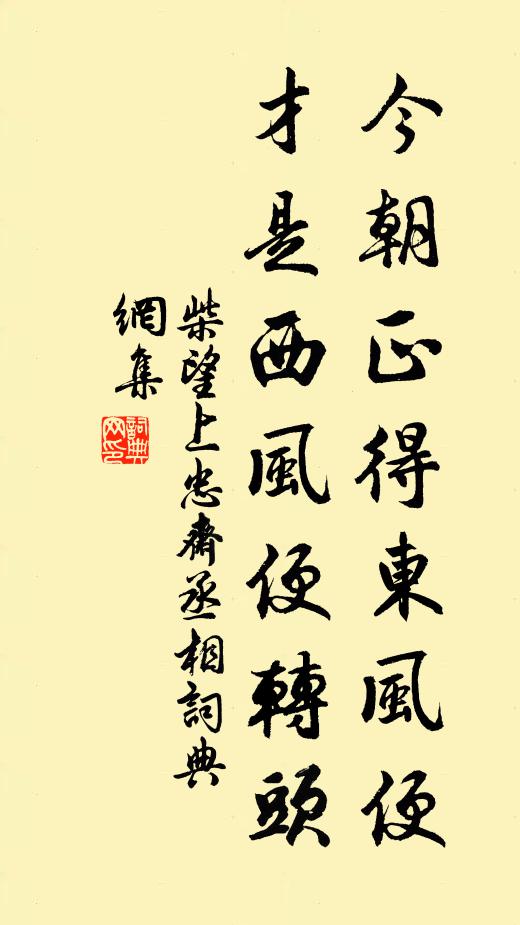 今朝正得東風便
才是西風便轉頭
柴望上忠齋丞相詞典
網集
詞典網印